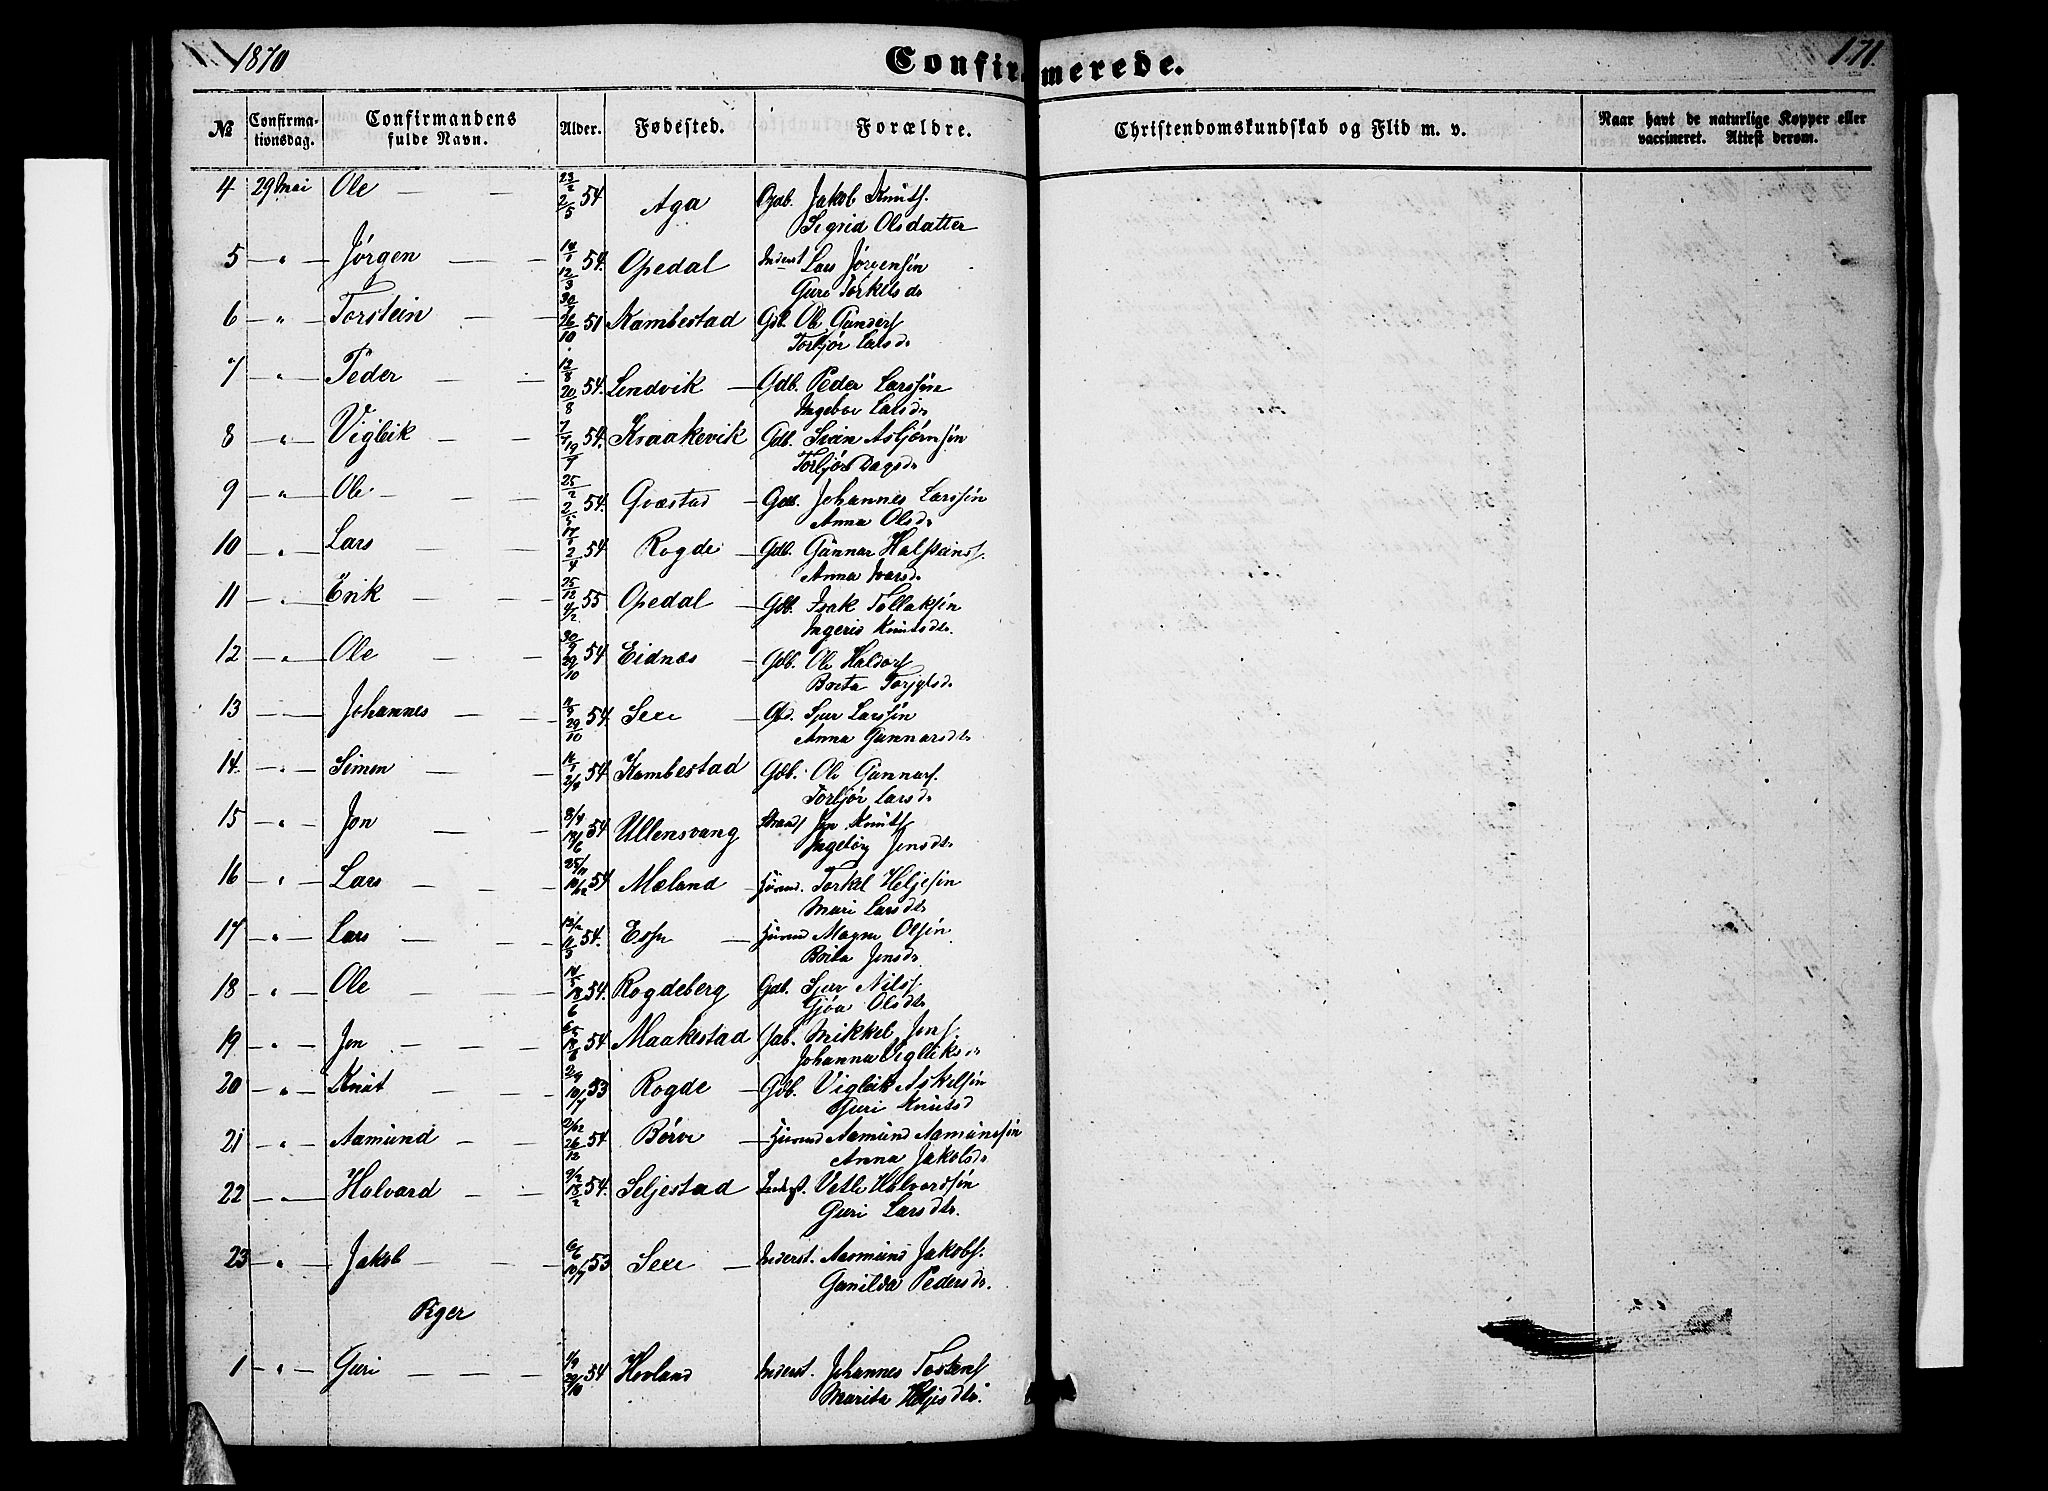 1870
Confirmerede.
171.
№ Confirma-tionsdag. Confirmandens fulde Navn. Alder. Fødested. Forældre. Christendomskundskab og Flid m. v. Naar havt de naturlige Kopper eller vaccineret. Attest derom.
4 29 Mai Ole — — 23/2 2/5 54 Aga Gdb. Jakob Knuts.
Sigrid Olsdatter
5 — " — Jørgen — 12/3 54. Opedal Inderst Lars Jørgensøn
Guri Torkelsdr
6 — " — Torstein — — 26/10 51 Kambestad Gdb. Ole Gunders
Torbjør Larsdr
7 — " — Peder — — 12/8 20/8 54. Lindvik — Gdb. Peder Larssøn
Ingebor Larsdr
8 — " — Vigleik — — 54. Kraakevik Gdb. Svein Asbjørnsøn
Torbjør Dagsdr
9 — " — Ole — — — 25/2 2/5 54. Qvæstad — Gdb. Johannes Larssøn
Anna Olsdr
10 — " — Lars — — 2/4 54 Rogde — Gdb. Gunnar Halsteinss.
Anna Ivarsdr
11 — " — Erik — — 25/12 9/2 55 Opedal — Gdb. Isak Tollaksøn
Ingeris Knutsdtr.
12 — " — Ole — — 30/9 29/10 54 Eidnæs — Gdb. Ole Haldors
Brita Torjylsdr
13 — " — Johannes — — 29/10 54. Sexe — Gbd. Sjur Larssøn
Anna Gunnarsdtr
14. — " — Simon — — 54 Kambestad Gdb. Ole Gunnars.
Torbjør Larsdr
15 — " — Jon — — 54 Ullensvang Strands Jon Knuts
Ingebørg Jonsdtr
16 — " — Lars — — 25/11 10/12 54 Mæland — Huusm. Torkel Heljesøn
Mari Larsdtr
17 — " — Lars — — 13/2 54. Espe — Huusm Magne Olsøn
Brita Jonsdr
18 — " — Ole — — 54. Rogdeberg Gdb. Sjur Nilss
Gjøa Olsdtr
19 — " — Jon — — — 54 Maakestad Gdb. Mikkel Jons.
Johanna Vigleiksdr
20 — " — Knut — — 10/7 53 Rogde — Gdb. Vigleik Askelsøn
Guri Knutsd
21 — " — Aamund — — 2/12 26/12 54 Børve — Huusmd Aamund Aamunssøn
Anna Jakobsdr
22 — " — Halvard — — 9/2 18/2 54. Seljestad — Inderst. Vetle Halvorssøn
Guri Larsdtr.
23 — " — Jakob — — 6/6 10/7 53 Sexe — Inderst. Aamund Jakobs.
Gunilda Pedersdr.
Piger
1 — " — Guri — — — 1/9 29/10 54 Hovland Inderst. Johannes Tostens
Marita Heljesdtr.